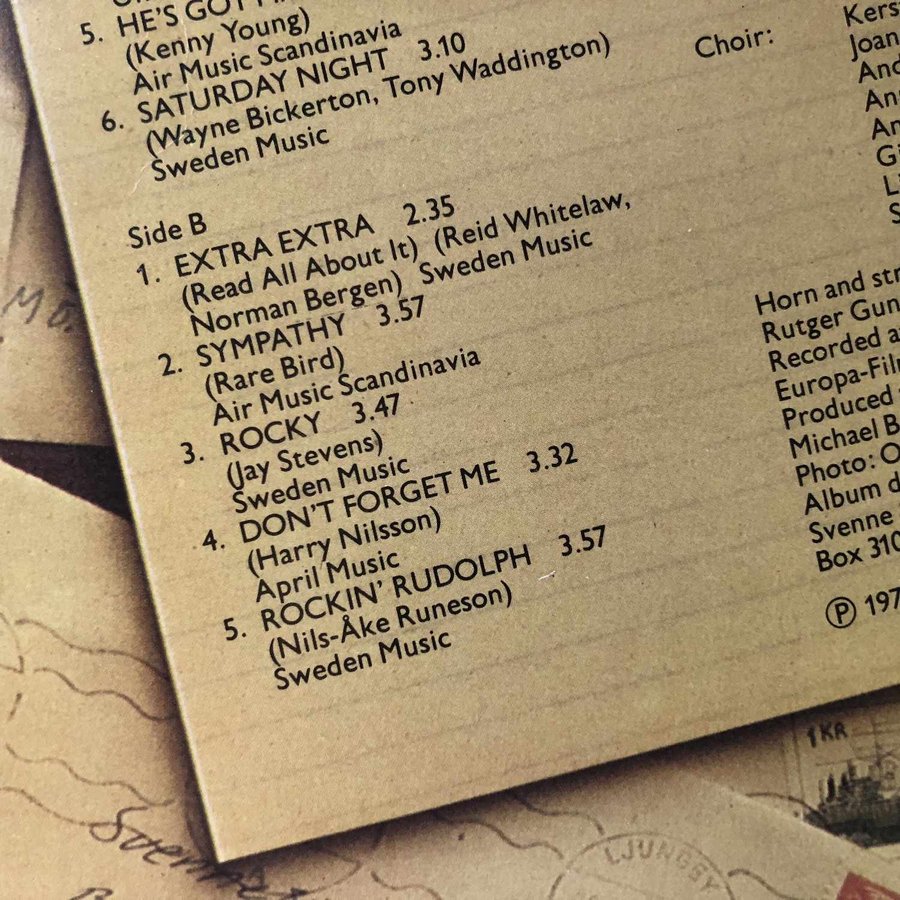 5. HE'S GOT
(Kenny Young)
Air Music Scandinavia
6. SATURDAY NIGHT 3.10
(Wayne Bickerton, Tony Waddington)
Sweden Music
Side B
1. EXTRA EXTRA 2.35
(Read All About It) (Reid Whitelaw,
Norman Bergen) Sweden Music
2. SYMPATHY 3.57
(Rare Bird)
Air Music Scandinavia
3. ROCKY 3.47
(Jay Stevens)
Sweden Music
4. DON'T FORGET ME 3.32
(Harry Nilsson)
April Music
5. ROCKIN' RUDOLPH 3.57
(Nils-Åke Runeson)
Sweden Music
Choir:
Horn and
Rutger
Recorded
Produced
Michael
Photo:
Album
Svenne
Box 310
Ⓟ 197
1 KR
LJUNGBY